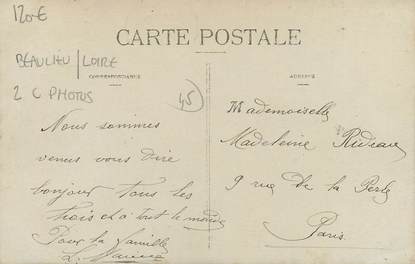 120€
CARTE POSTALE
BEAULIEU / LOIRE
CORRESPONDANCE
ADRESSE
2 C PHOTOS
45
Nous sommes
venus vous dire
bonjour tous les
trois et à tout le monde
Pour la famille
L.
Mademoiselle
Madeleine Rideau
9 rue de la Perle
Paris